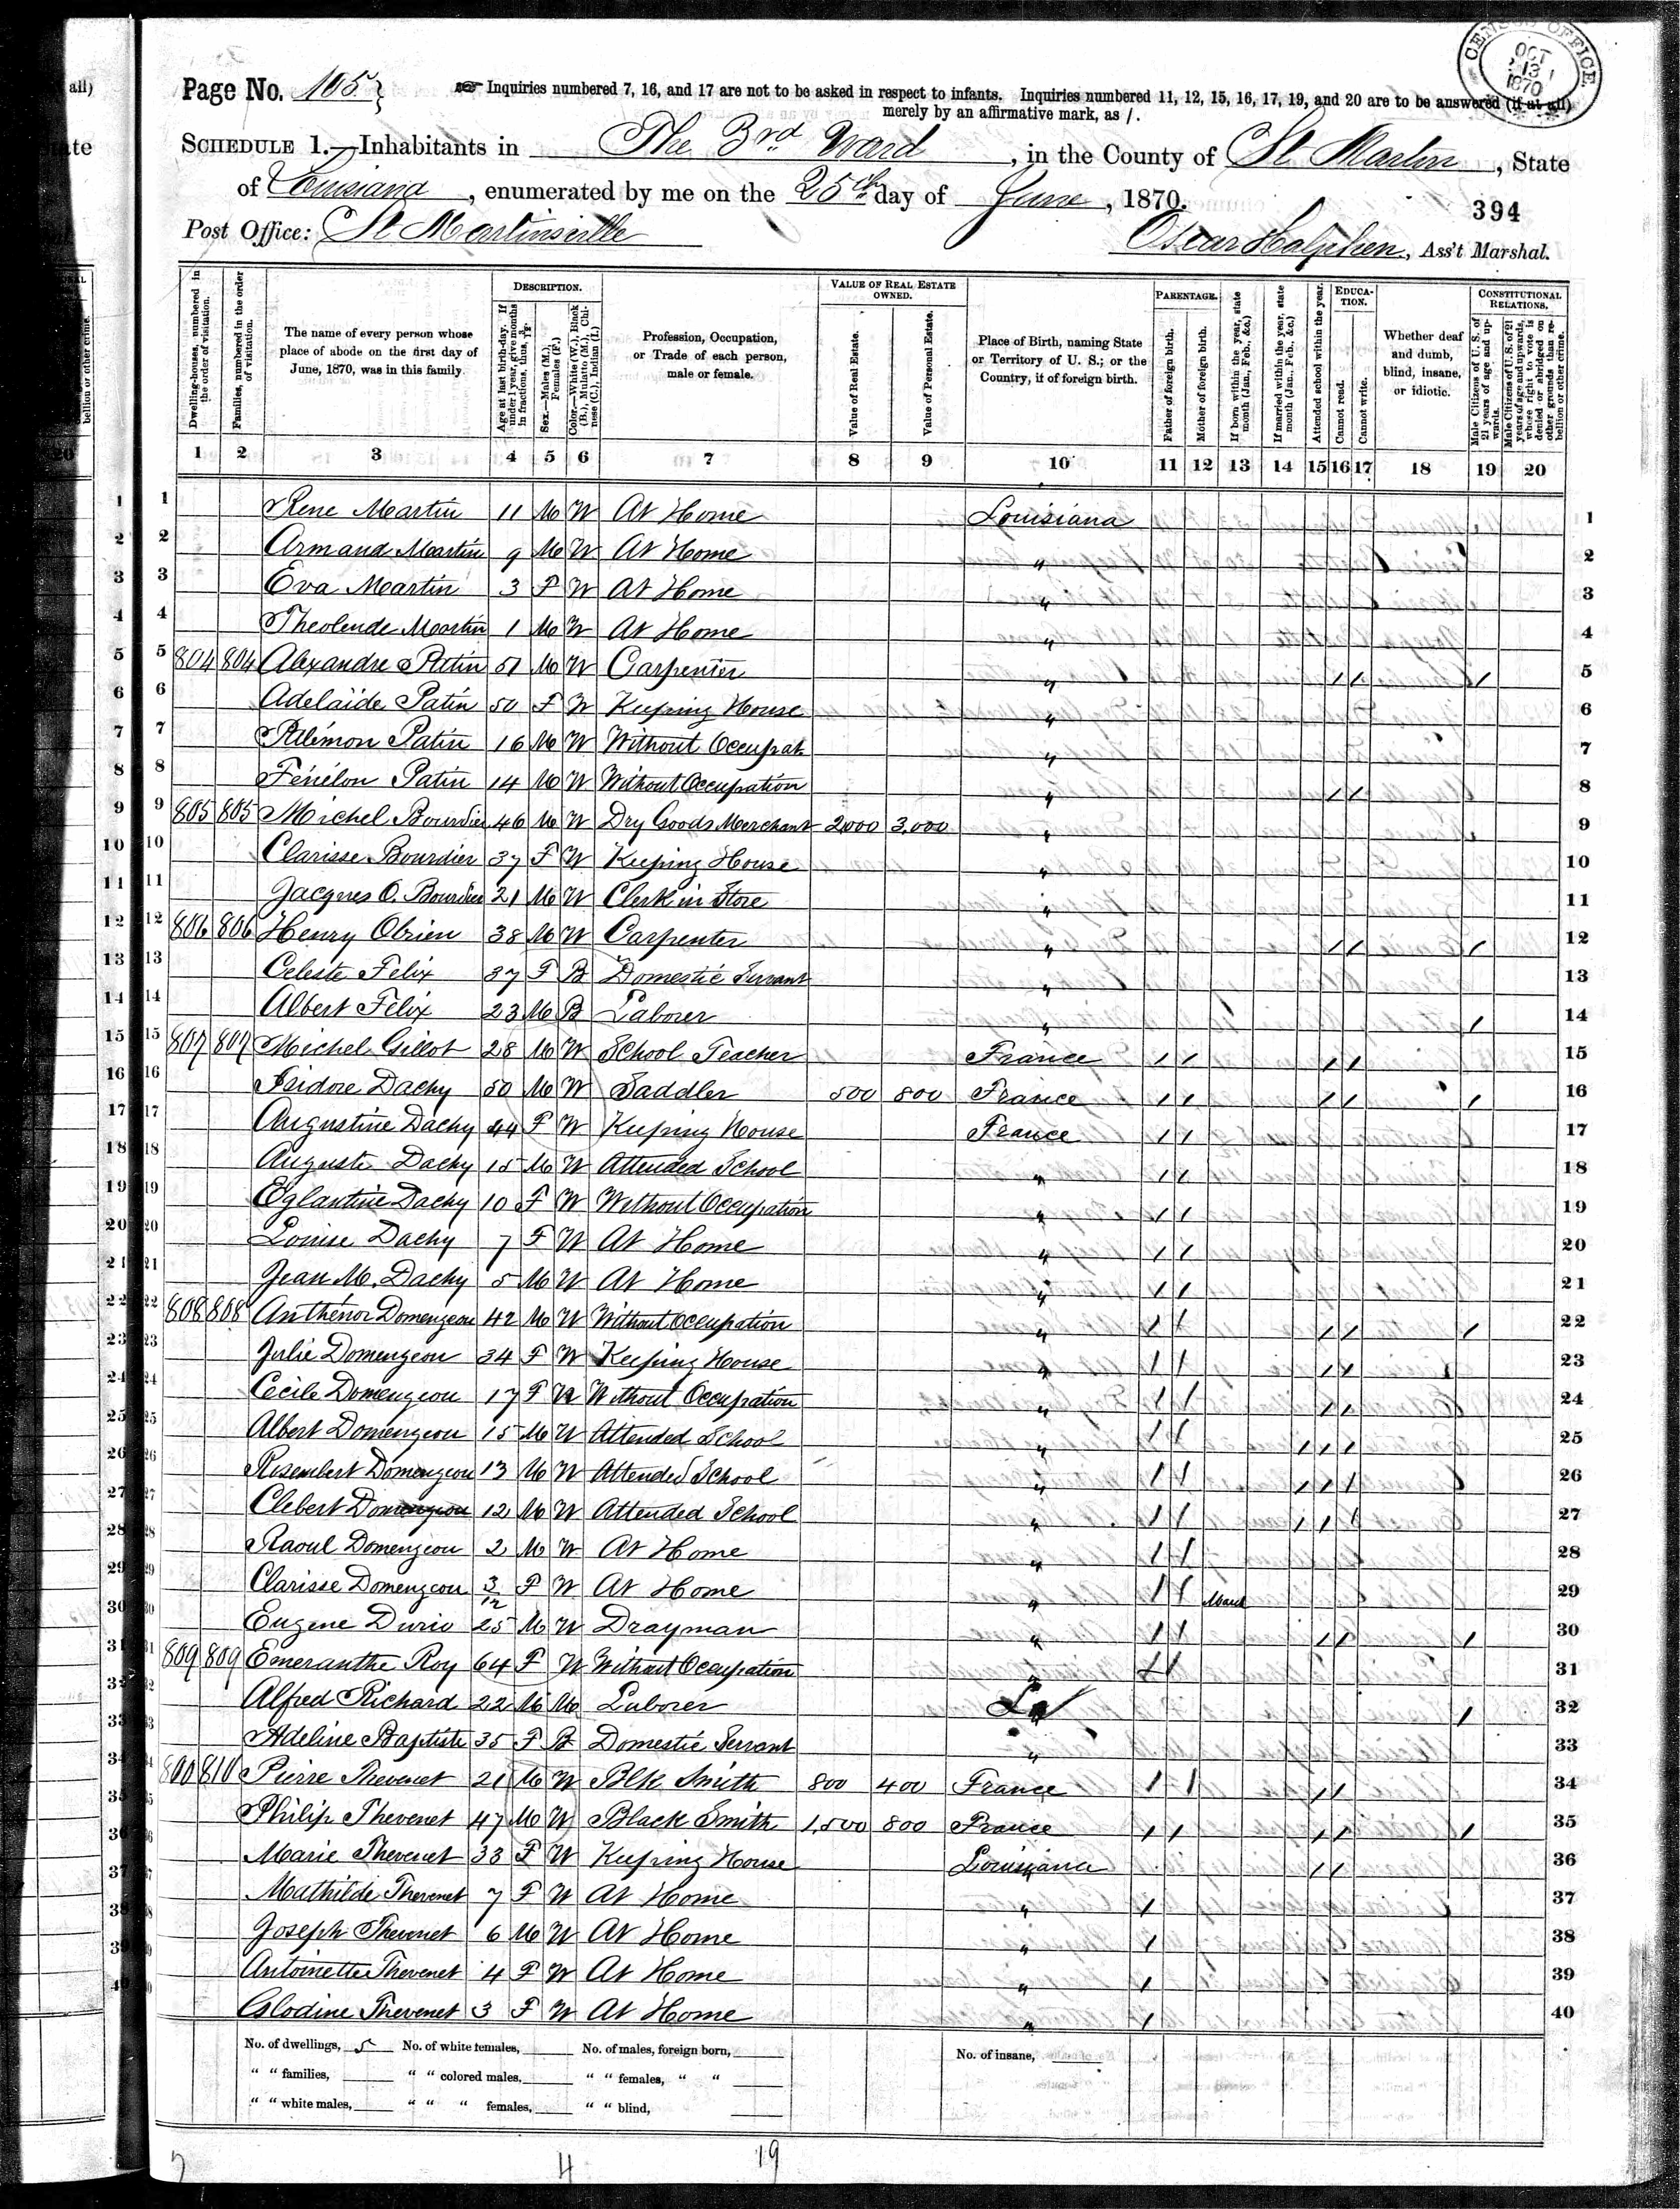 all)
CENSUS OFFICE
OCT
13
1870
Page No. 105
Inquiries numbered 7, 16, and 17 are not to be asked in respect to infants. Inquiries numbered 11, 12, 15, 16, 17, 19, and 20 are to be answered (if at all)
merely by an affirmative mark, as /.
SCHEDULE 1.—Inhabitants in The 3rd Ward, in the County of St Martin, State
of Louisiana, enumerated by me on the 25th day of June, 1870.
394
Post Office: St Martinsville
Oscar Halphen, Ass't Marshal.
Dwelling-houses, numbered in the order of visitation.
Families, numbered in the order of visitation.
The name of every person whose place of abode on the first day of June, 1870, was in this family.
DESCRIPTION.
Age at last birth-day. If under 1 year, give months in fractions, thus, 3/12.
Sex.—Males (M.), Females (F.)
Color.—White (W.), Black (B.), Mulatto (M.), Chinese (C.), Indian (I.)
Profession, Occupation, or Trade of each person, male or female.
VALUE OF REAL ESTATE OWNED.
Value of Real Estate.
Value of Personal Estate.
Place of Birth, naming State or Territory of U. S.; or the Country, if of foreign birth.
PARENTAGE.
Father of foreign birth.
Mother of foreign birth.
If born within the year, state month (Jan., Feb., &c.)
If married within the year, state month (Jan., Feb., &c.)
Attended school within the year.
EDUCATION.
Cannot read.
Cannot write.
Whether deaf and dumb, blind, insane, or idiotic.
CONSTITUTIONAL RELATIONS.
Male Citizens of U. S. of 21 years of age and upwards.
Male Citizens of U. S. of 21 years of age and upwards, whose right to vote is denied or abridged on other grounds than rebellion or other crime.
1 2 3 4 5 6 7 8 9 10 11 12 13 14 15 16 17 18 19 20
1 Rene Martin 11 M W At Home Louisiana 1
2 Armand Martin 9 M W At Home " 2
3 Eva Martin 3 F W At Home " 3
4 Theolende Martin 1 M W At Home " 4
5 804 804 Alexandre Patin 51 M W Carpenter " / / / 5
6 Adelaïde Patin 50 F W Keeping House " 6
7 Palémon Patin 16 M W Without Occupat. " 7
8 Fénélon Patin 14 M W Without Occupation " / / 8
9 805 805 Michel Bourdier 46 M W Dry Goods Merchant 2,000 3,000 " 9
10 Clarisse Bourdier 37 F W Keeping House " 10
11 Jacques O. Bourdier 21 M W Clerk in Store " 11
12 806 806 Henry Obrien 38 M W Carpenter " / / / 12
13 Celeste Felix 37 F B Domestic Servant " 13
14 Albert Felix 23 M B Laborer " / 14
15 807 807 Michel Gillot 28 M W School Teacher France / / / / 15
16 Isidore Dachy 50 M W Saddler 500 800 France / / / / / 16
17 Augustine Dachy 44 F W Keeping House France / / 17
18 Auguste Dachy 15 M W Attended School " / / 18
19 Eglantine Dachy 10 F W Without Occupation " / / 19
20 Louise Dachy 7 F W At Home " / / 20
21 Jean M. Dachy 5 M W At Home " / / 21
22 808 808 Anthénor Domengeau 42 M W Without Occupation " / / / / / 22
23 Julie Domengeau 34 F W Keeping House " / / / / 23
24 Cecile Domengeau 17 F W Without Occupation " / / / / 24
25 Albert Domengeau 15 M W Attended School " / / / / / 25
26 Rosembert Domengeau 13 M W Attended School " / / / / / 26
27 Clebert Domengeau 12 M W Attended School " / / / / / 27
28 Raoul Domengeau 2 M W At Home " / / 28
29 Clarisse Domengeau 3/12 F W At Home " / / March 29
30 Eugene Durio 25 M W Drayman " / / / / / 30
31 809 809 Emeranthe Roy 64 F W Without Occupation " / / 31
32 Alfred Richard 22 M M Laborer La / 32
33 Adeline Baptiste 35 F B Domestic Servant " 33
34 800 810 Pierre Thevenet 21 M W Blk Smith 800 400 France / / / / 34
35 Philip Thevenet 47 M W Black Smith 1,500 800 France / / / / / 35
36 Marie Thevenet 33 F W Keeping House Louisiana / / 36
37 Mathilde Thevenet 7 F W At Home " / 37
38 Joseph Thevenet 6 M W At Home " / 38
39 Antoinette Thevenet 4 F W At Home " / 39
40 Clodine Thevenet 3 F W At Home " / 40
No. of dwellings, 5 No. of white females, No. of males, foreign born, No. of insane,
" " families, " " colored males, " " females, " "
" " white males, " " " females, " " blind,
4 19